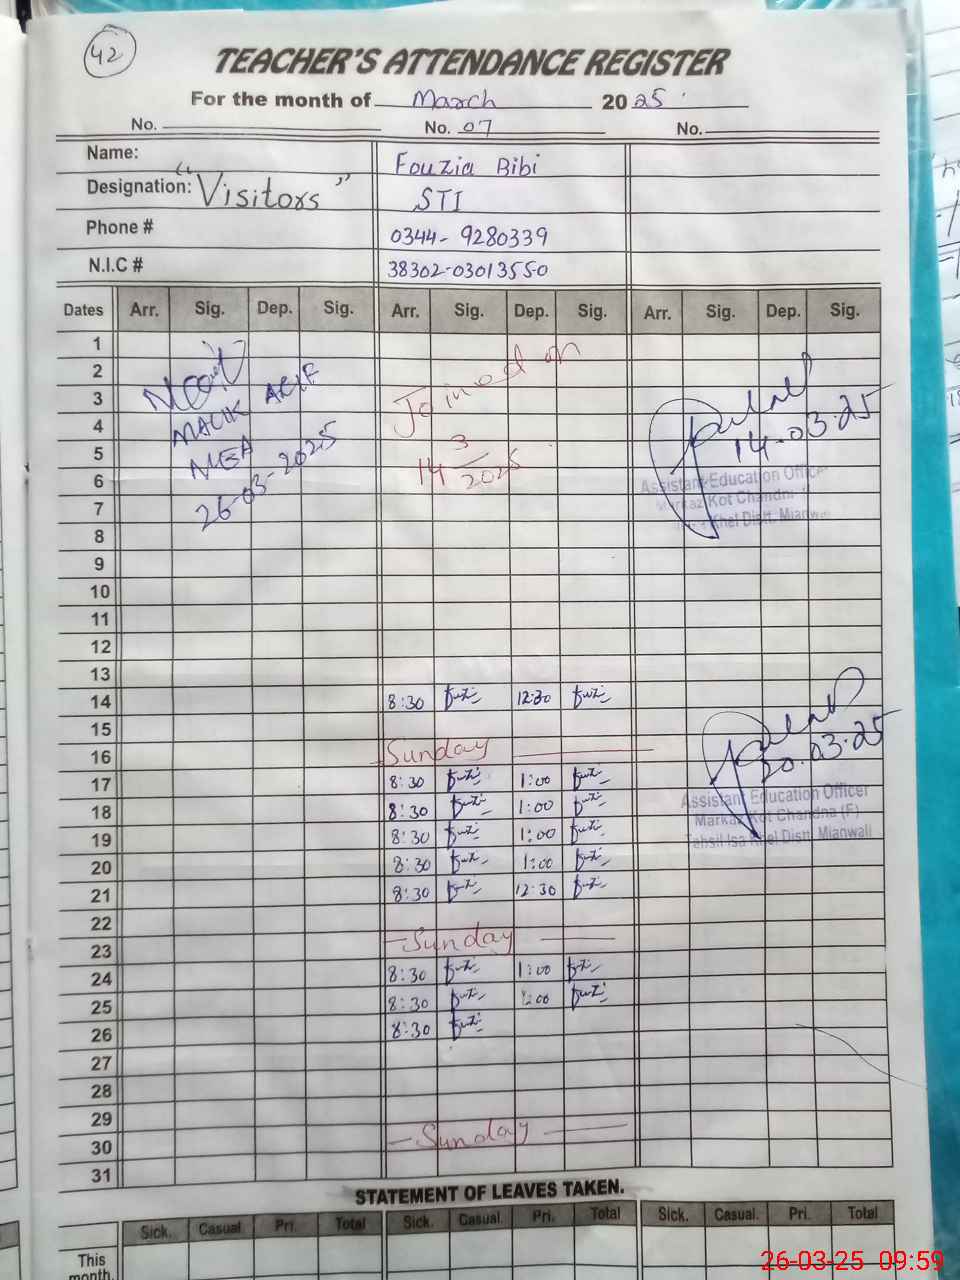 42
TEACHER'S ATTENDANCE REGISTER
For the month of March 2025
No. No. 07 No.
Name: Fouzia Bibi
Designation: "Visitors" STI
Phone # 0344-9280339
N.I.C # 38302-0301355-0
Dates Arr. Sig. Dep. Sig. Arr. Sig. Dep. Sig. Arr. Sig. Dep. Sig.
1
2 Joined on
3 MALIK ASIF
4 14.03.25
5 MEA 14 3/2025
6 26-03-2025 Assistant Education Officer
7 Markaz Kot Chandna
8 Khel Distt. Mianwali
9
10
11
12
13
14 8:30 12:30
15
16 Sunday 20.03.25
17 8:30 1:00
18 8:30 1:00 Assistant Education Officer
19 8:30 1:00 Markaz Kot Chandna (F)
20 8:30 1:00 Tehsil Isa Khel Distt. Mianwali
21 8:30 12:30
22
23 Sunday
24 8:30 1:00
25 8:30 1:00
26 8:30
27
28
29
30 Sunday
31
STATEMENT OF LEAVES TAKEN.
Sick. Casual. Pri. Total Sick. Casual. Pri. Total Sick. Casual. Pri. Total
This
month.
26-03-25 09:59